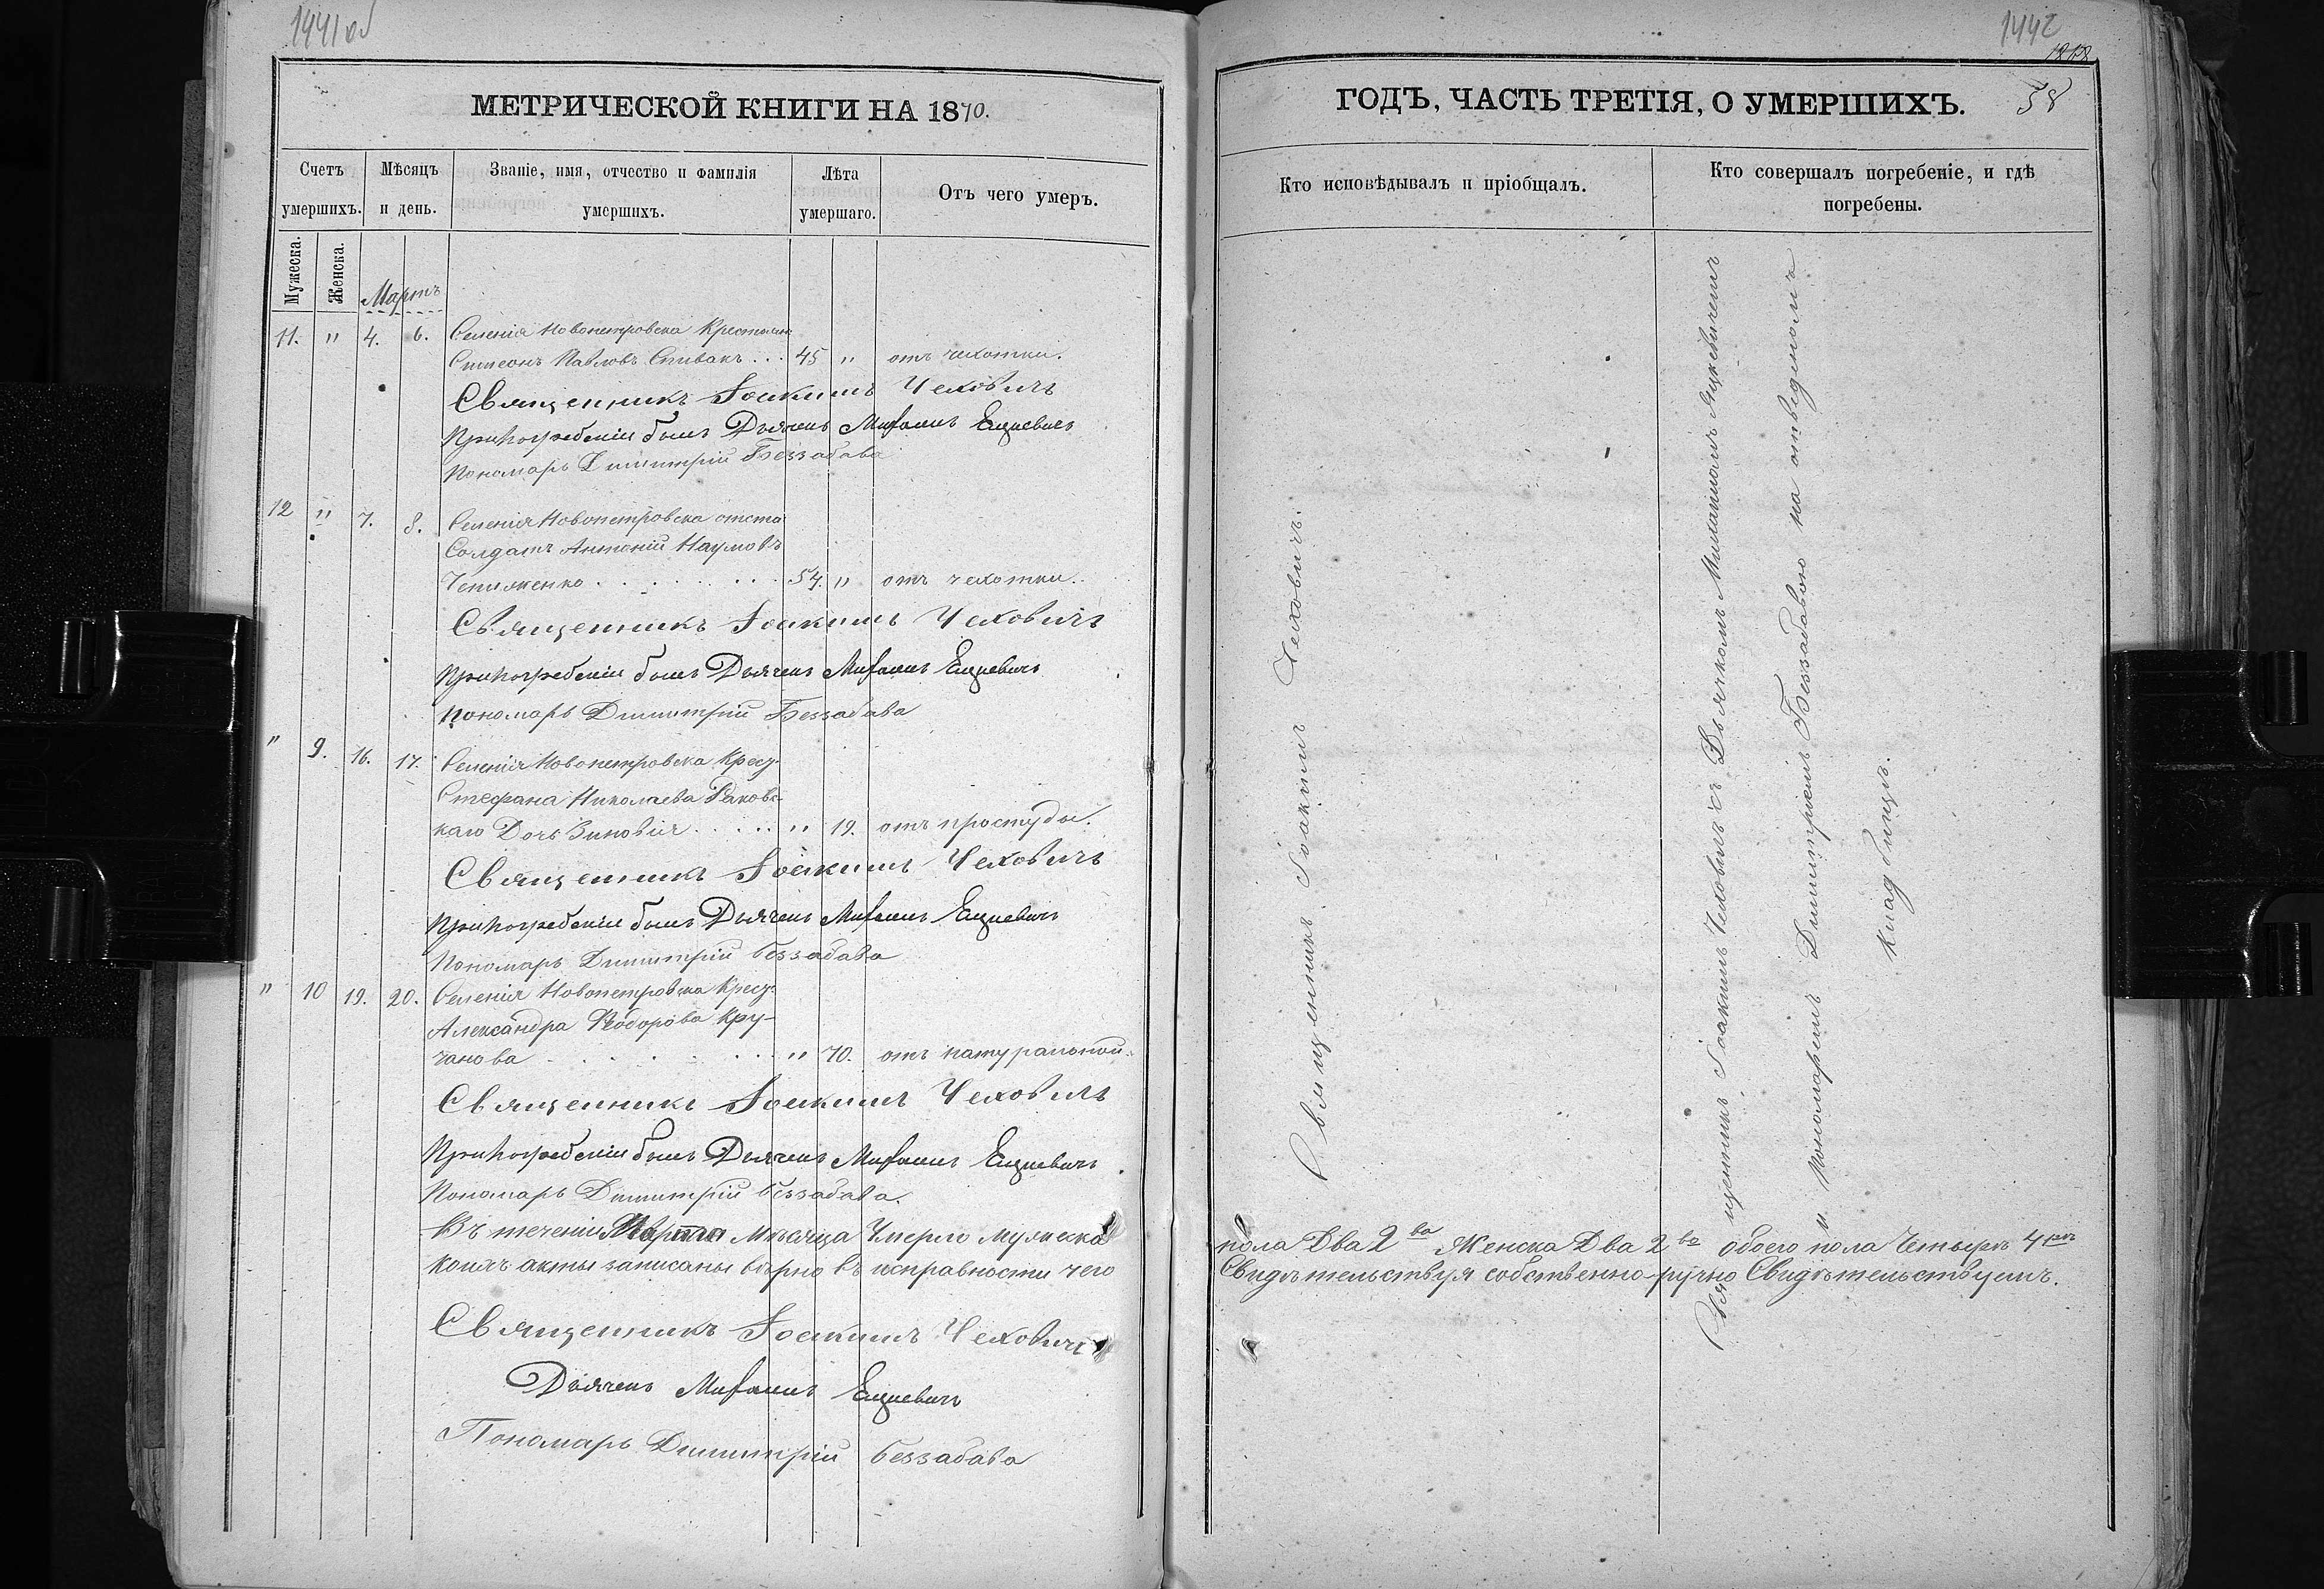 1441 об
МЕТРИЧЕСКОЙ КНИГИ НА 1870.
Счетъ умершихъ.
Мѣсяцъ и день.
Званіе, имя, отчество и фамилія умершихъ.
Лѣта умершаго.
Отъ чего умеръ.
Мужеска.
Женска.
Мартъ
11. " 4. 6. Селенія Новопетровска Крестьян
Симеонъ Павловъ Спивакъ ... 45 " отъ чахотки.
Священникъ Іоакимъ Чеховичъ
При погребеніи былъ Дьячекъ Михаилъ Ецкевичъ
Пономарь Димитрій Беззабава
12 " 7. 8. Селенія Новопетровска отста
Солдатъ Антоній Наумовъ
Чепиженко . . . . . . . . 54. " отъ чехотки.
Священникъ Іоакимъ Чеховичъ
При погребеніи былъ Дьячекъ Михаилъ Ецкевичъ
Пономарь Димитрій Беззабава
" 9. 16. 17. Селенія Новопетровска Крес.
Стефана Николаева Раковс-
каго Дочь Зиновія . . . . . " 19. отъ простуды.
Священникъ Іоакимъ Чеховичъ
При погребеніи былъ Дьячекъ Михаилъ Ецкевичъ
Пономарь Димитрій беззабава
" 10 19. 20. Селенія Новопетровска Крес.
Александра Ѳеодорова Кру-
чанова . . . . . . . . " 70. отъ натуральной.
Священникъ Іоакимъ Чеховичъ
При погребеніи былъ Дьячекъ Михаилъ Ецкевичъ
Пономарь Димитрій беззабава.
Въ теченіи Марта мѣсяца Умерло мужеска
коихъ акты записаны вѣрно въ исправности чего
Священникъ Іоакимъ Чеховичъ
Дьячекъ Михаилъ Ецкевичъ
Пономарь Димитрій беззабава
1442
ГОДЪ, ЧАСТЬ ТРЕТІЯ, О УМЕРШИХЪ. 58
Кто исповѣдывалъ и пріобщалъ.
Кто совершалъ погребеніе, и гдѣ погребены.
Священникъ Іоакимъ Чеховичъ.
Священникъ Іоакимъ Чеховичъ съ Дьячкомъ Михаиломъ Яцкевичемъ
и Пономаремъ Димитріемъ Беззабавою на отведномъ
кладбищѣ.
пола Два 2ва Женска Два 2ва обоего пола Четыре 4ре
Свидѣтельствуя собственно-ручно Свидѣтельствуемъ.